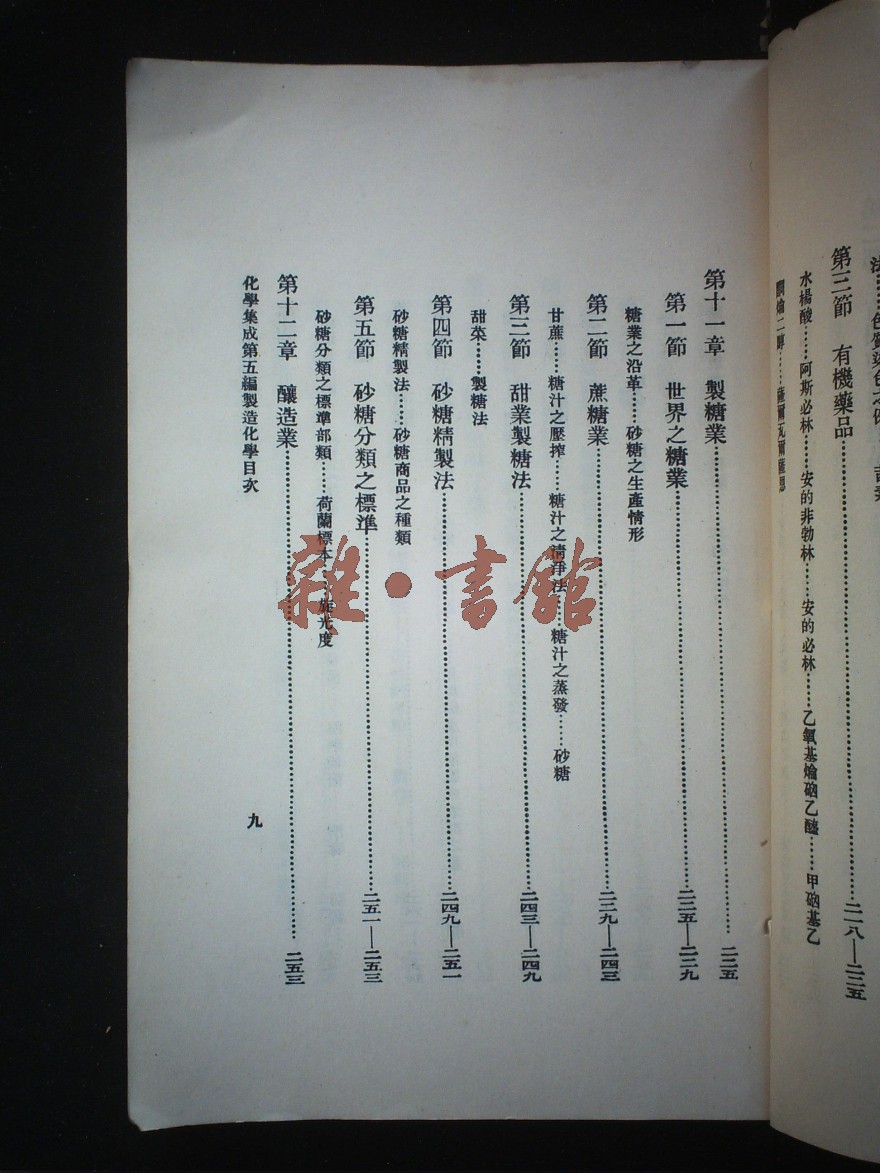 第三節　有機藥品……二一八—二二五
水楊酸……阿斯必林……安的非勃林……安的必林……乙氧基㷻砌乙醯……甲砌基乙
第十一章　製糖業……二二五
第一節　世界之糖業……二二五—二二九
糖業之沿革……砂糖之生產情形
第二節　蔗糖業……二二九—二四三
甘蔗……糖汁之壓搾……糖汁之清淨法……糖汁之蒸發……砂糖
第三節　甜業製糖法……二四三—二四九
甜菜……製糖法
第四節　砂糖精製法……二四九—二五一
砂糖精製法……砂糖商品之種類
第五節　砂糖分類之標準……二五一—二五三
砂糖分類之標準部類……荷蘭標本……旋光度
第十二章　釀造業……二五三
化學集成第五編製造化學目次
九
雜·書館